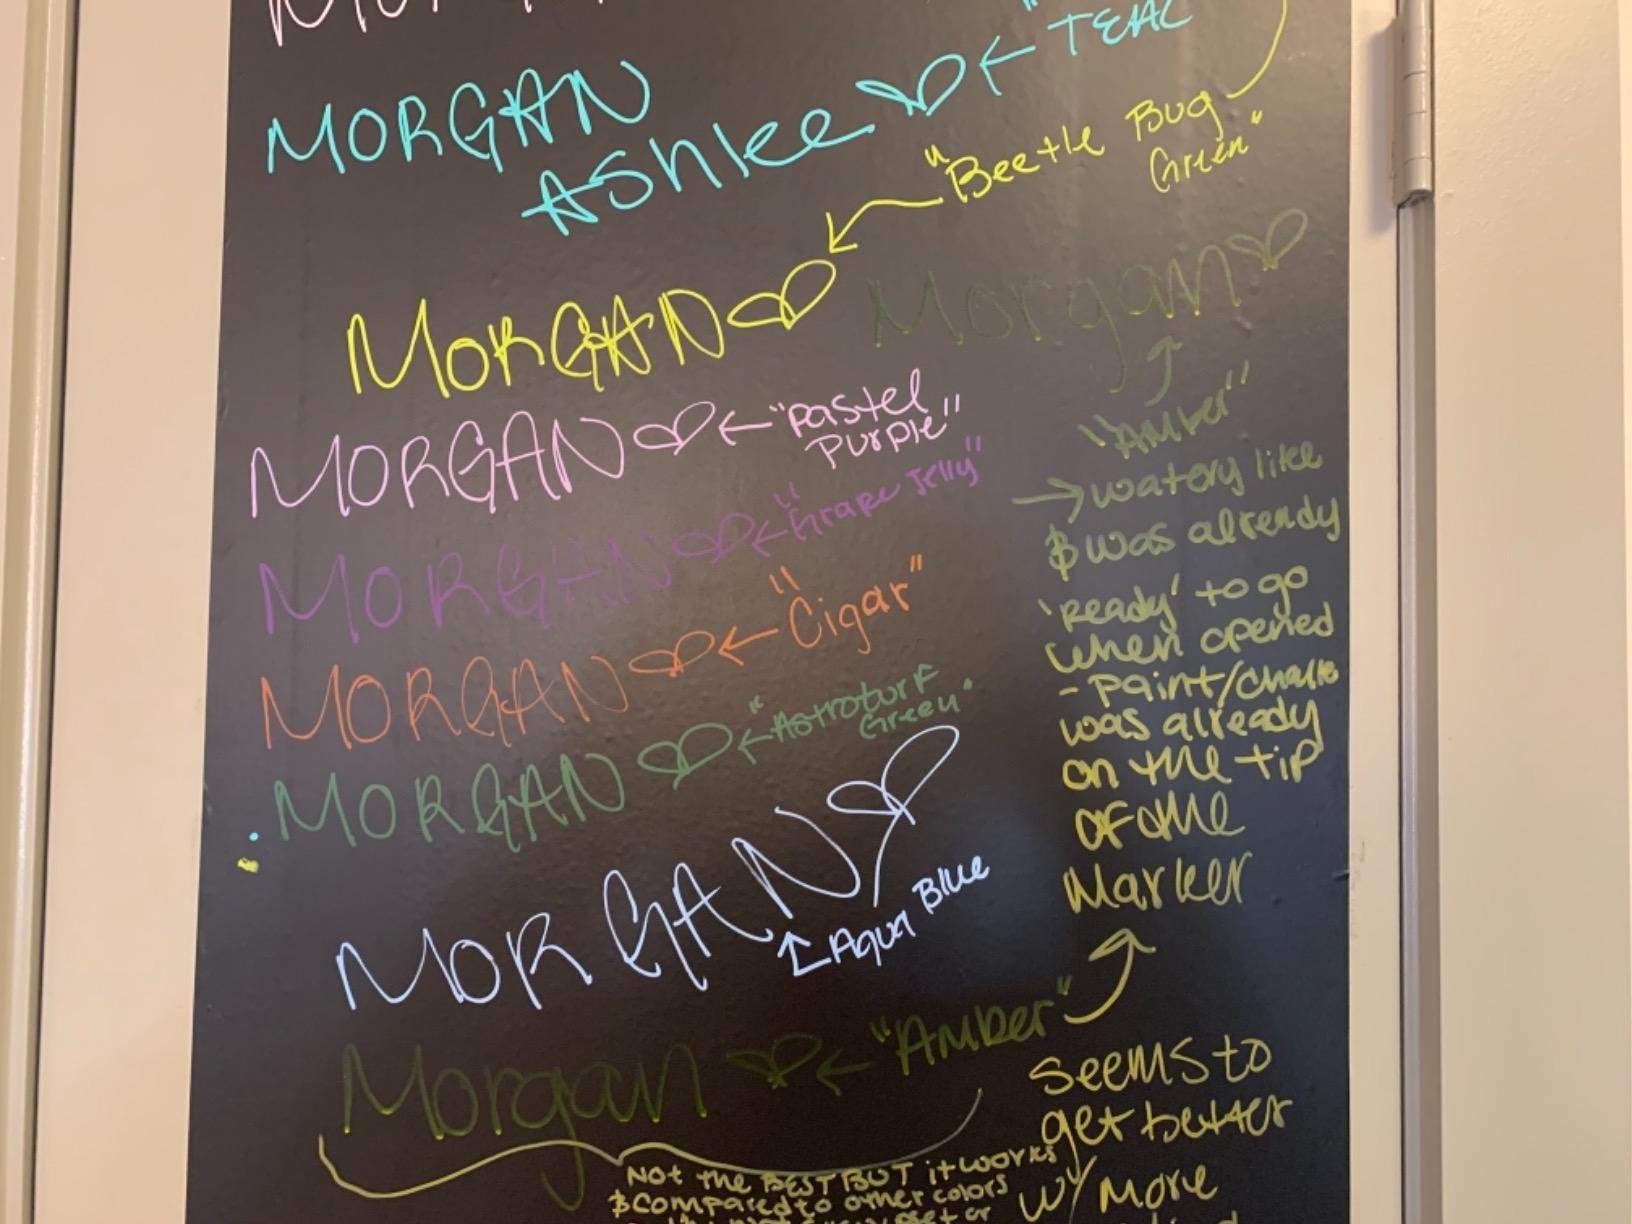 MORGAN
ASHlee
← TEAL
"Beetle Bug
Green"
MORGAN
Morgan
MORGAN ← "Pastel
Purple"
"Amber"
MORGAN ← "Grape Jelly"
→ watery like
$ was already
'ready' to go
when opened
MORGAN ← "Cigar"
- paint/chalk
was already
on the tip
of the
Marker
MORGAN ← "Astroturf
Green"
MORGAN
Aqua Blue
Morgan ← "AMBer"
seems to
get better
w/ more
Not the BEST BUT it works
$ compared to other colors